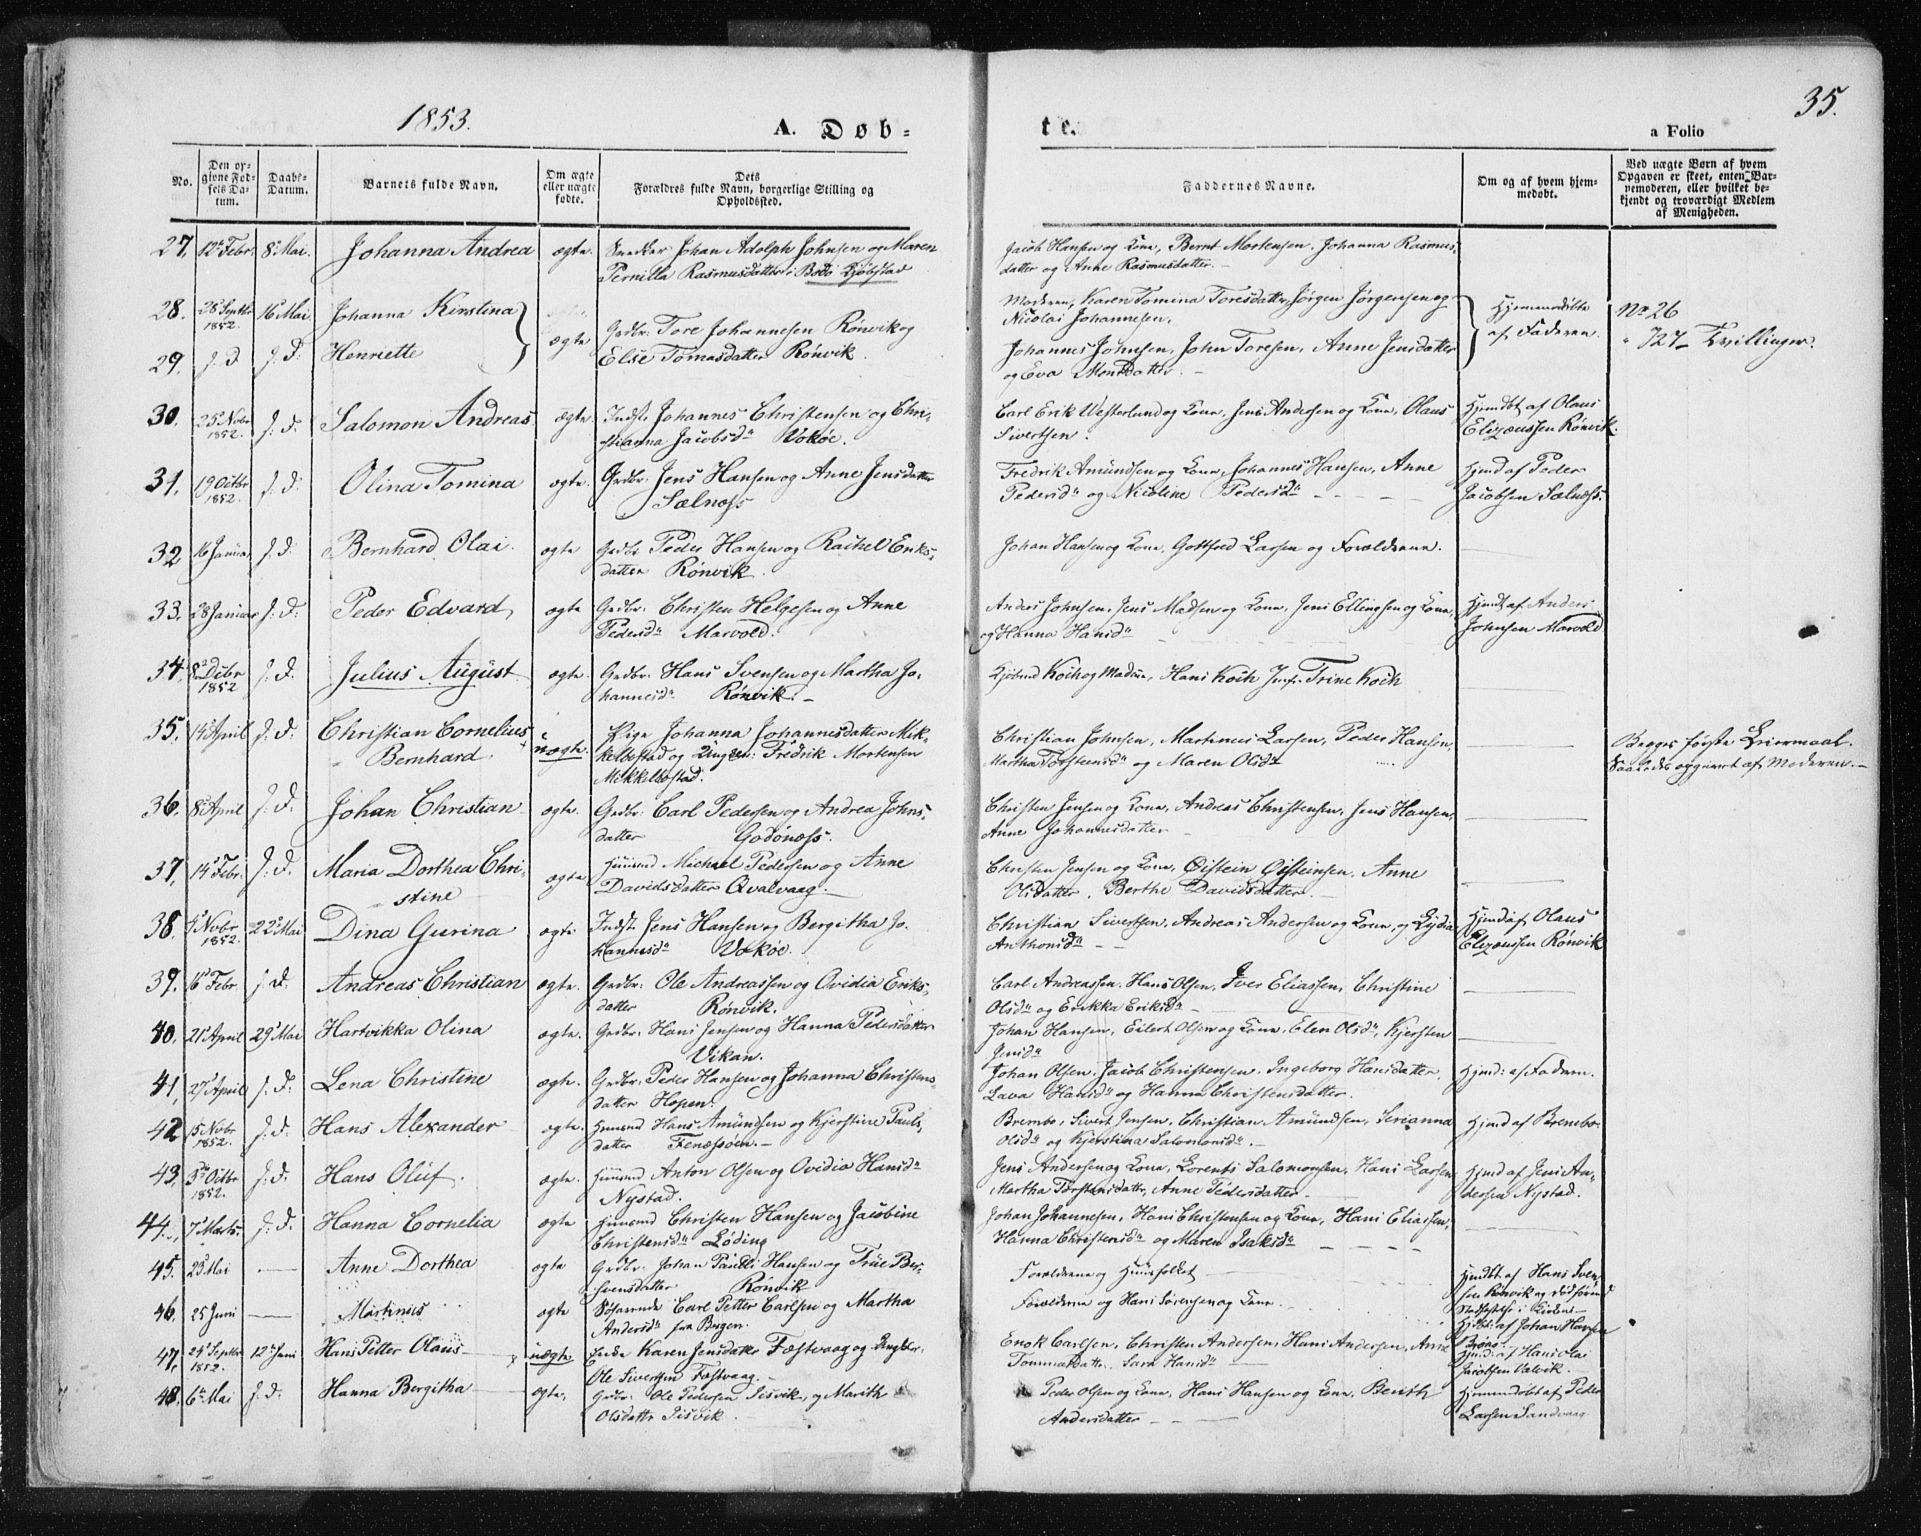 1853.
A. Døb-
te.
35.
a Folio
No.
Den op-
givne Fød-
sels Da-
tum.
Daabs-
Datum.
Barnets fulde Navn.
Om ægte
eller uægte
fødte.
Dets
Forældres fulde Navn, borgerlige Stilling og
Opholdssted.
Faddernes Navne.
Om og af hvem hjem-
medøbt.
Ved uægte Børn af hvem
Opgaven er skeet, enten Bar-
nemoderen, eller hvilket be-
kjendt og troværdigt Medlem
af Menigheden.
27. 12te Febr. 8de Mai. Johanna Andrea ægte. Snedker Johan Adolph Johnsen og Maren
Pernilla Rasmusdatter i Bodø Kjøbstad
Jacob Hansen og Kone, Bernt Mortensen, Johanna Rasmus-
datter og Anne Rasmusdatter.
28. 28 Septbr 1852. 16 Mai. Johanna Kirstina
29. J. D. J. D. Henriette
ægte Grdbr. Tore Johannesen Rönvik og
Else Tomasdatter Rönvik.
Moderen, Karen Tomina Toresdatter, Jörgen Jörgensen og
Nicolai Johannesen.
Johannes Johnsen, John Toresen, Anne Jensdatter
og Eva Montsdatter.
Hjemmedöbte
af Faderen.
No 26
" 727 Tvillinger.
30. 25 Novbr 1852. J. D. Salomon Andreas ægte. Indst. Johannes Christensen og Chri-
stianna Jacobsdr Vokøe.
Carl Erik Westerlund og Kone, Jens Andersen og Kone, Olaus
Sivertsen.
Hjemdbt af Olaus
Elizeussen Rönvik.
31. 19 Octbr 1852. J. D. Olina Tomina ægte. Grdbr. Jens Hansen og Anne Jensdatter
Sælnæss
Fredrik Amundsen og Kone, Johannes Hansen, Anne
Pedersdr og Nicoline Pedersdr
Hjemd af Peder
Jacobsen Sælnæss.
32 16 Januar J. D. Bernhard Olai. ægte Grdbr Peder Hansen og Rachel Eriks-
datter Rönvik.
Johan Hansen og Kone, Gottfred Larsen og Forældrene.
33. 28 Januar J. D. Peder Edvard ægte Grdbr: Christen Helgesen og Anne
Pedersdr Marvold.
Anders Johnsen, Jens Madsen og Kone, Jens Ellingsen og Kone,
og Hanna Hansdr
Hjemdt af Anders
Johnsen Marvold
34. 8de Dcbr 1852 J. D. Julius August ægte. Grdbr. Hans Svensen og Martha Jo-
hannesdr Rönvik.
Kjøbmd Koch og Madme, Hans Koch Jmfr. Trine Koch
35. 14 April J. D. Christian Cornelius
Bernhard
uægte. Pige Johanna Johannesdatter Mik-
kelbostad og Ungkarl: Fredrik Mortensen
Mikkelbostad.
Christian Johnsen, Martinus Larsen, Peder Hansen,
Martha Torsteinsdr og Maren Olsdr
Begges første Leiermaal.
Saaledes opgivet af Moderen.
36. 8de April J. D. Johan Christian ægte. Grdbr: Carl Pedersen og Andrea Johns-
datter Godönæss.
Christen Jensen og Kone, Andreas Christensen, Jens Hansen,
Anne Johannesdatter
37. 14 Febr. J. D. Maria Dorthea Chri-
stine
ægte Huusmd Michael Pedersen og Anne
Davidsdatter Qvalvaag.
Christen Jensen og Kone, Øistein Øisteinsen, Anne
Olsdatter, Berthe Davidsdatter.
38. Novbr 1852. 22de Mai Dina Gurina ægte Indst. Jens Hansen og Bergitha Jo-
hannesdr Vokøe.
Christian Sivertsen, Andreas Andersen og Kone, og Lydia
Anthonsdr
Hjemd af Olaus
Elizeussen Rönvik
39. 16 Febr. J. D. Andreas Christian ægte. Grdbr: Ole Andreassen og Ovidia Eriks-
datter Rönvik.
Carl Andreassen, Hans Olsen, Iver Eliassen, Christine
Olsdr og Erikka Eriksdr
40. 21 April 29de Mai Hartvikka Olina ægte. Grdbr: Hans Jensen og Hanna Pedersdatter
Vikan.
Johan Hansen, Eilert Olsen og Kone, Elen Olsdr, Kjersten
Jensdr
41. 27 April J. D. Lena Christine ægte. Grdbr: Peder Hansen og Johanna Christens-
datter Hopen.
Johan Olsen, Jacob Christensen, Ingeborg Hansdatter,
Lava Hansdr og Hanna Christensdatter.
Hjemd: af Faderen.
42 15 Novbr 1852. J. D. Hans Alexander ægte Huusmd Hans Amundsen og Kjerstine Pauls-
datter Fenæssöen.
Brembo, Sivert Jensen, Christian Amundsen, Serianna
Olsdr og Kjerstina Salomonsdr.
Hjemd af Brembo.
43. 3de Octbr 1852. J. D. Hans Oluf. ægte. Huusmd Anton Olsen og Ovidia Hansdr
Nystad.
Jens Andersen og Kone, Lorents Salomonsen, Hans Larsen,
Martha Torstensdatter, Anne Pedersdatter
Hjemd af Jens An-
dersen Nystad.
44. 7 Marts. J. D. Hanna Cornelia ægte Huusmd Christen Hansen og Jacobine
Christensdr Löding
Johan Johannesen, Hans Christensen og Kone, Hans Eliassen,
Hanna Christensdr og Maren Isaksdr
45. 23 Mai Anne Dorthea ægte Grdbr. Johan Paulli Hansen og Trüe Ber-
Rönvik
Forældrene og Huusfolket
Hjemdbt af Hans Sven-
sen Rönvik og
46. 25 Juni Martinus ægte Søfarende Carl Petter Carlsen og Martha
Andersdr fra Bergen.
Forældrene og Hans Sørensen og Kone.
Hjdbt. af Johan Hansen
47. Septbr 1852. 12te Juni Hans Petter Olaus uægte Karen Jensdatter Fæstvaag og Ungkar
Ole Sivertsen Fæstvaag.
Enok Carlsen, Christen Andersen, Hans Andersen, Anne
Tommasdatter, Sara Hansdr
Hjemd: af Hans Olai
Jacobsen Valvik
48. 6te Mai J. D. Hanna Bergitha ægte, Grdbr: Ole Pedersen Sisvik, og Marith
Olsdattr Sisvik
Peder Olsen og Kone, Hans Hansen og Kone, Berith
Andersdatter
Hjemmedöbt af Peder
Larsen Sandvaag